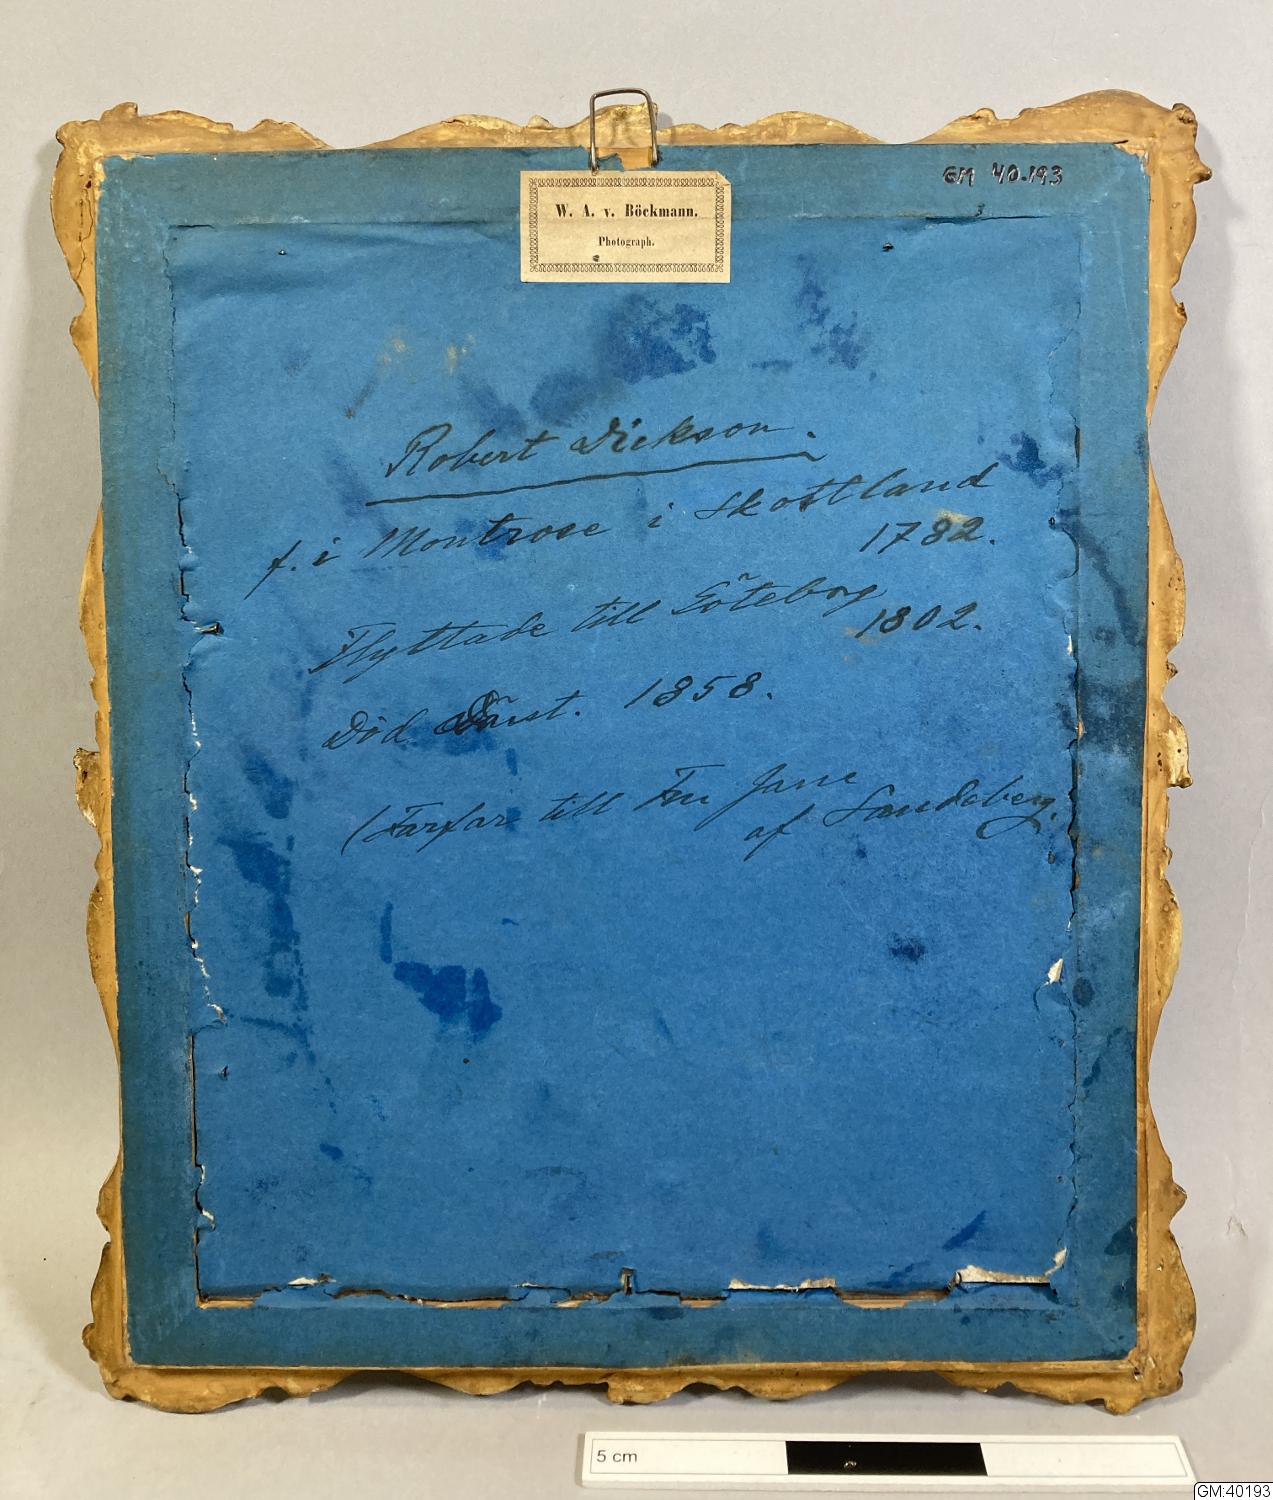 GM 40.193
W. A. v. Böckmann.
Photograph.
Robert Dickson.
f. i Montrose i Skottland
1782.
Flyttade till Göteborg
1802.
Död Därst. 1858.
(Farfar till Fru Jane
af Sandeberg.
5 cm
GM:40193